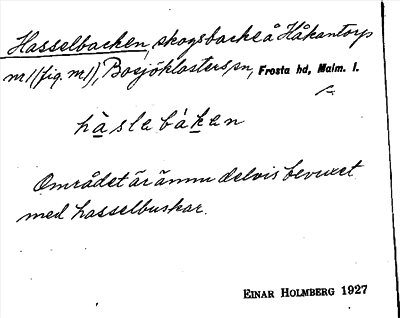 Hasselbacken, skogsbacke å Håkantorp
m/1 (fig. m/), Bosjöklosters sn, Frosta hd, Malm. l.
hàslebáken
Området är ännu delvis bevuxet
med hasselbuskar.
EINAR HOLMBERG 1927